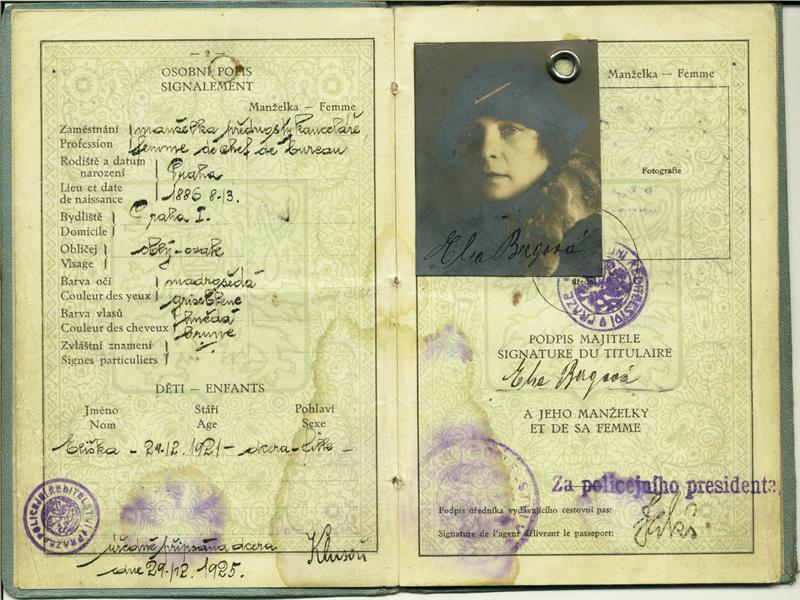 — 2 —
OSOBNÍ POPIS
SIGNALEMENT
Manželka — Femme
Zaměstnání manželka přednosty kanceláře,
Profession femme de chef de bureau
Rodiště a datum
narození Praha
Lieu et date
de naissance 1886 8-13.
Bydliště Praha I.
Domicile
Obličej oblý-ovale
Visage
Barva očí modrošedá
Couleur des yeux gris-bleue
Barva vlasů hnědá
Couleur des cheveux brune
Zvláštní znamení
Signes particuliers
DĚTI — ENFANTS
Jméno Stáří Pohlaví
Nom Age Sexe
Eliška - 24.12. 1921 - dcera - fille -
POLICEJNÍ ŘEDITELSTVÍ V PRAZE
úředně připsána dcera
dne 29./12. 1925.
Manželka — Femme
Fotografie
Elsa Bergová
PODPIS MAJITELE
SIGNATURE DU TITULAIRE
Elsa Bergová
A JEHO MANŽELKY
ET DE SA FEMME
Za policejního presidenta
Podpis úředníka vydávajícího cestovní pas:
Signature de l'agent délivrant le passeport: